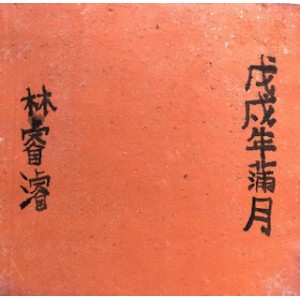 戊戌年蒲月
林睿濬